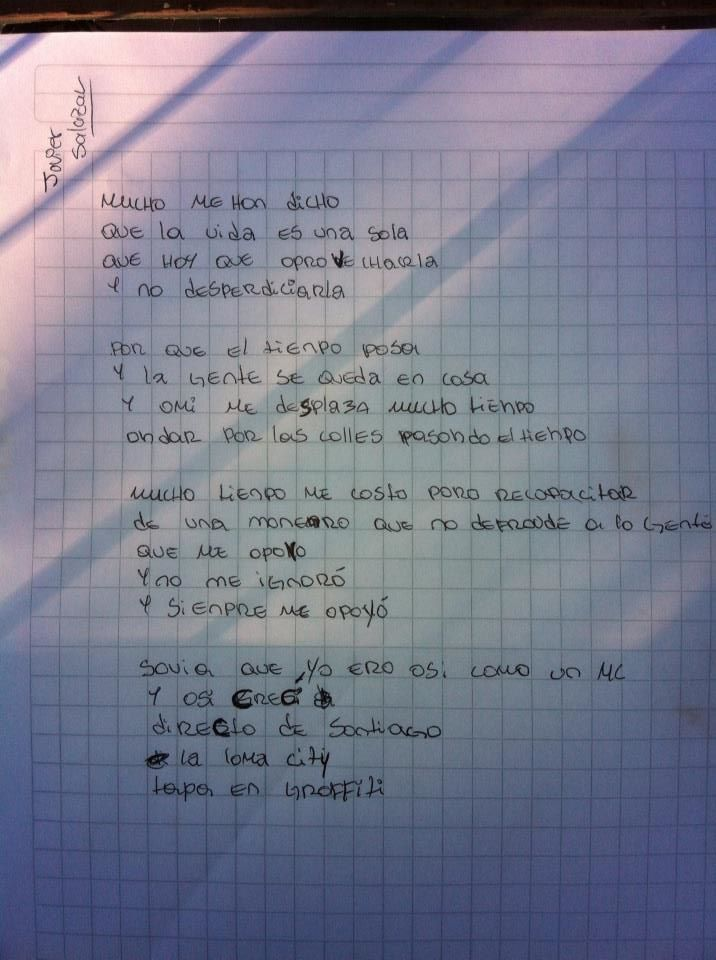 Javier
Salazar
MUCHO ME HAN dicHO
QUE la vida ES una sola
QUE HAY QUE APROVECHARla
Y no DESPERdiciARla
POR QUE El tiENPO pasa
Y la GENTE SE QUEda En casa
Y ami ME dESplaza MUCHO tiENPO
andaR POR las calles pasando el tiEnpo
MUCHO tiENPO ME costo paRa RECapacitaR
de una manERa QUE no DEFRaude a la GEntE
QUE ME apoyo
Y no me iGnoRó
Y SiENPRE ME apoyó
savia QUE yo ERa asi como un MC
Y asi CREci
diRECto de SantiaGo
la loma city
tapa En GRaFFiti